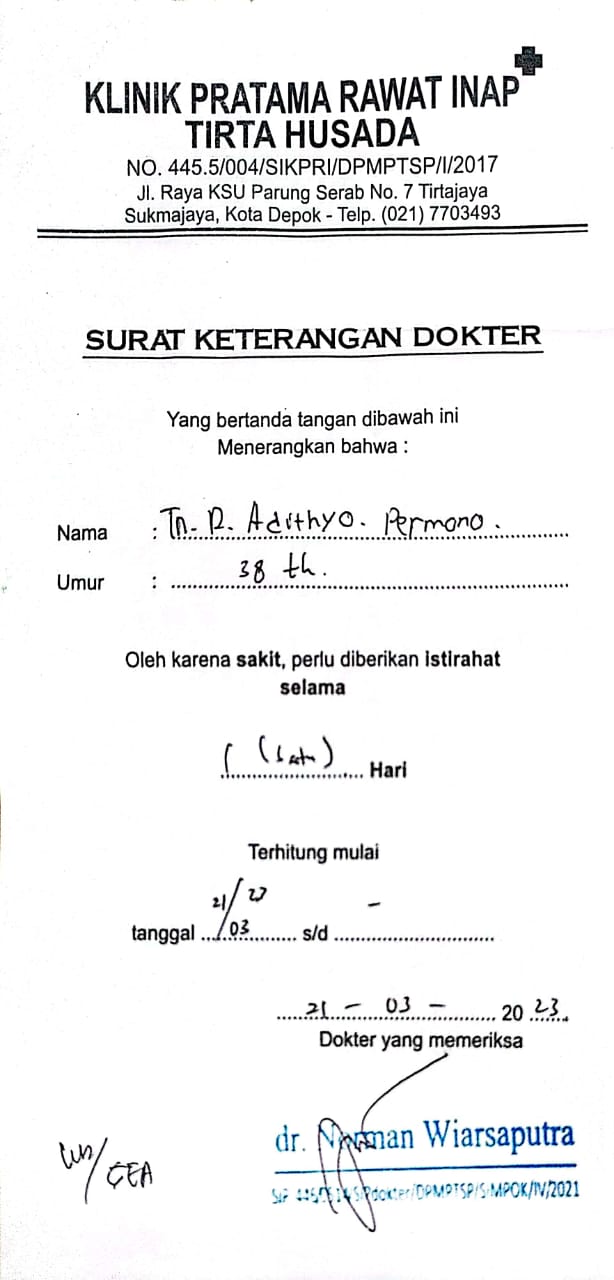 KLINIK PRATAMA RAWAT INAP
TIRTA HUSADA
NO. 445.5/004/SIKPRI/DPMPTSP/I/2017
Jl. Raya KSU Parung Serab No. 7 Tirtajaya
Sukmajaya, Kota Depok - Telp. (021) 7703493
SURAT KETERANGAN DOKTER
Yang bertanda tangan dibawah ini
Menerangkan bahwa :
Nama : Tn. R. Adithyo. Permono.
Umur : 38 th.
Oleh karena sakit, perlu diberikan istirahat
selama
1 (Satu) Hari
Terhitung mulai
tanggal 21/03 23 s/d -
21 - 03 - 2023
Dokter yang memeriksa
dr. Norman Wiarsaputra
GEA